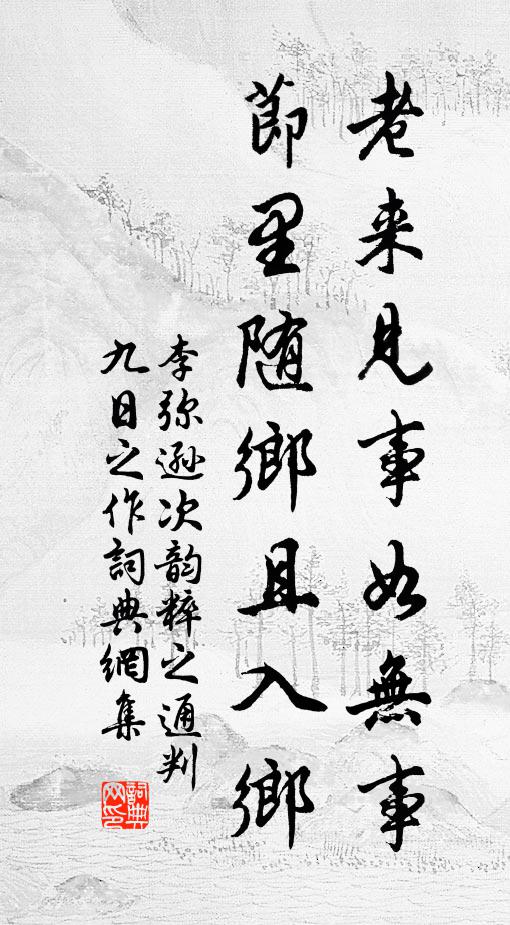 老来見事如無事
節里随鄉且入鄉
李弥遜次韵粹之通判
九日之作詞典網集
詞典网印